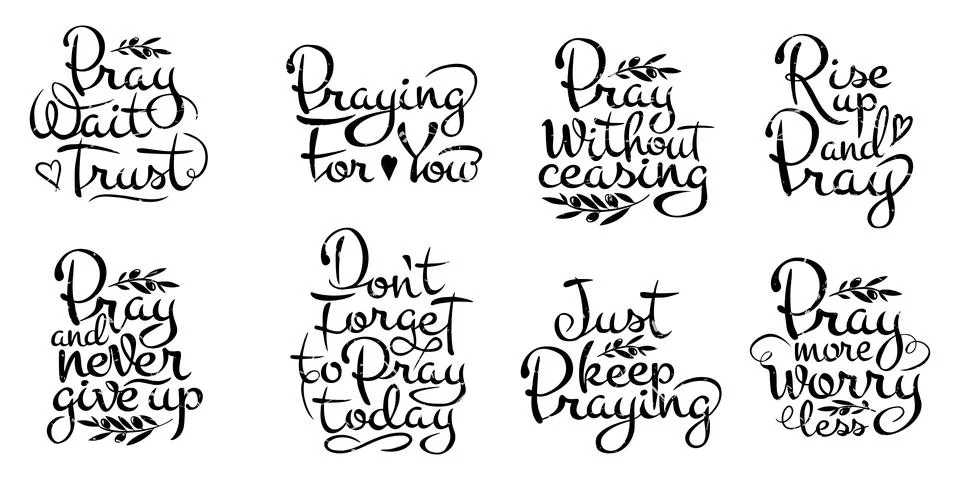 Pray
Wait
Trust
Praying
For You
Pray
Without
ceasing
Rise
up
and
Pray
Pray
and
never
give up
Don't
Forget
to Pray
today
Just
keep
Praying
Pray
more
worry
less